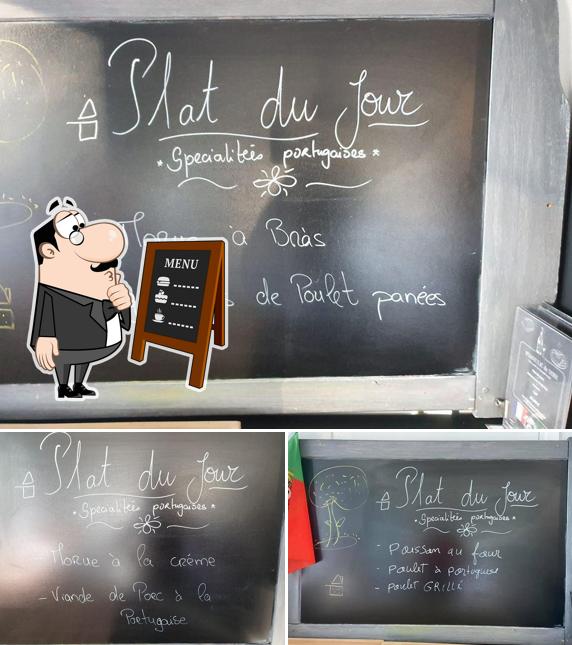 Plat du Jour
* Specialitées portugaises *
Morue à Bràs
de Poulet panées
MENU
Plat du Jour
* Specialitées portugaises *
- Morue à la créme
- Viande de Porc à la
Portugaise
Plat du Jour
* Specialitées portugaises *
- Poisson au four
- Poulet à portugaise
- Poulet GRILLÉ